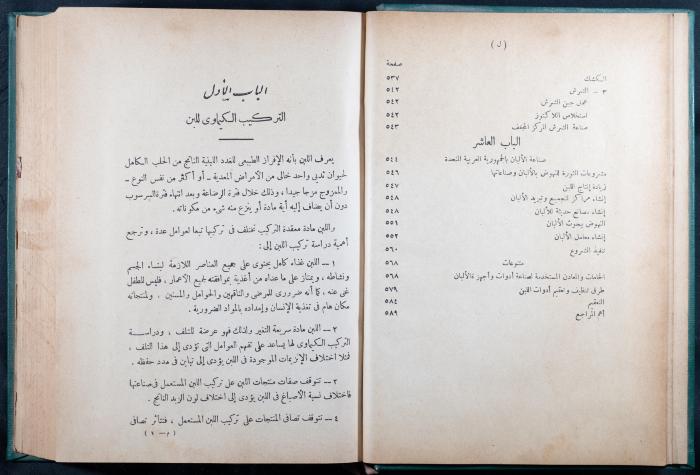 ( ل )
صفحة
الكشك ٥٣٧
٣ — الشرش ٥٤٢
عمل جبن الشرش ٥٤٢
استخلاص اللاكتوز ٥٤٢
صناعة الشرش المركز المجفف ٥٤٣
الباب العاشر
صناعة الألبان بالجمهورية العربية المتحدة ٥٤٤
مشروعات الثورة للنهوض بالألبان وصناعتها ٥٤٦
زيادة إنتاج اللبن ٥٤٧
إنشاء مراكز لتجميع وتبريد الألبان ٥٤٨
إنشاء مصانع حديثة للألبان ٥٤٨
النهوض ببحوث الألبان ٥٥١
إنشاء معامل الألبان ٥٥٢
تنفيذ الشروع ٥٦٠
متنوعات ٥٦٨
الخامات والمعادن المستخدمة لصناعة أدوات وأجهزة الألبان ٥٦٨
طرق تنظيف وتعقيم أدوات اللبن ٥٧٩
التعقيم ٥٨٤
أهم المراجع ٥٨٩
الباب الأول
التركيب الكيماوى للبن
يعرف اللبن بأنه الإفراز الطبيعى للغدد اللبنية الناتج من الحلب الكامل
لحيوان ثديى واحد خالى من الأمراض المعدية — أو أكثر من نفس النوع —
والممزوج مزجا جيدا، وذلك خلال فترة الرضاعة وبعد انتهاء فترة السرسوب
دون أن يضاف إليه أية مادة أو ينزع منه شىء من مكوناته .
واللبن مادة معقدة التركيب تختلف فى تركيبها تبعا لعوامل عدة ، وترجع
أهمية دراسة تركيب اللبن إلى :
١ — اللبن غذاء كامل يحتوى على جميع العناصر اللازمة لبناء الجسم
ونشاطه ، ويمتاز على ما عداه من أغذية بموافقته لجميع الأعمار ، فليس للطفل
غنى عنه ، كما أنه ضرورى للمرضى والناقهين والحوامل والمسنين . ولمنتجاته
مكان هام فى تغذية الإنسان وإمداده بالمواد الضرورية .
٢ — اللبن مادة سريعة التغير ولذلك فهو عرضة للتلف ، ودراسة
التركيب الكيماوى لها يساعد على تفهم العوامل التى تؤدى إلى هذا التلف ،
فمثلا اختلاف الإنزيمات الموجودة فى اللبن يؤدى إلى تباين فى مدد حفظه .
٣ — تتوقف صفات منتجات اللبن على تركيب اللبن المستعمل فى صناعتها
فاختلاف نسبة الأصباغ فى اللبن يؤدى إلى اختلاف لون الزبد الناتج .
٤ — تتوقف تصافى المنتجات على تركيب اللبن المستعمل ، فتتأثر تصافى
( م — ١ )